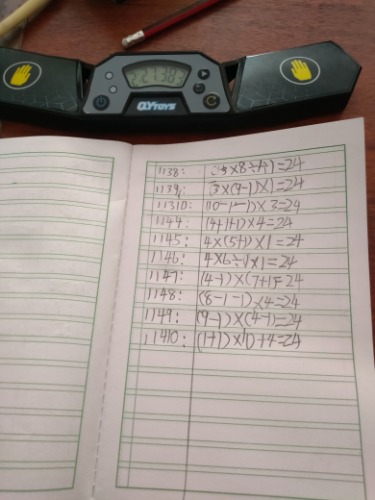 2:27.383
QYTOYS
1138: (3×8÷1)÷1=24
1139: 3×(9-1)×1=24
11310: (10-1-1)×3=24
1144: (4+1+1)×4=24
1145: 4×(5+1)×1=24
1146: 4×6÷1×1=24
1147: (4-1)×(7+1)=24
1148: (8-1-1)×4=24
1149: (9-1)×(4-1)=24
11410: (1+1)×10+4=24